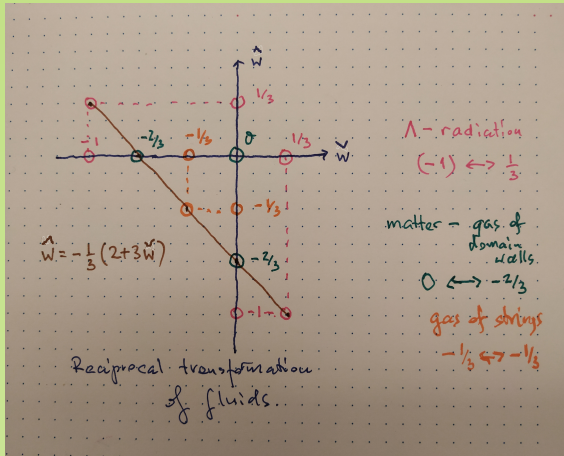 ŵ
1/3
-1
-2/3
-1/3
0
1/3
w̌
-1/3
ŵ = -1/3 (2+3w̌)
-2/3
-1
Reciprocal transformation
of fluids.
Λ - radiation
(-1) ↔ 1/3
matter - gas of
domain
walls
0 ↔ -2/3
gas of strings
-1/3 ↔ -1/3